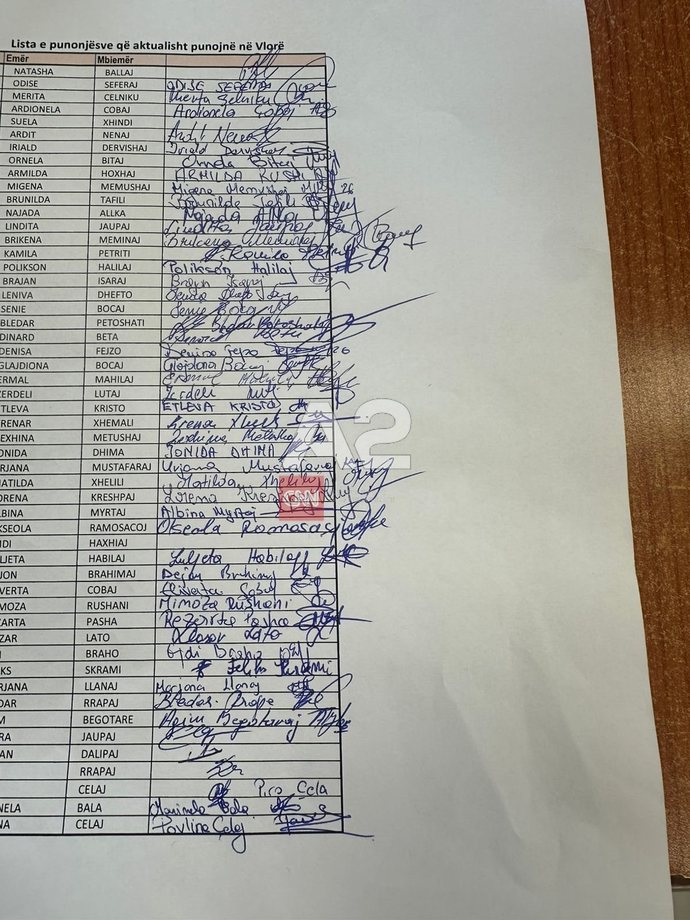 Lista e punonjësve që aktualisht punojnë në Vlorë
Emër Mbiemër
NATASHA BALLAJ
ODISE SEFERAJ ODISE SEFERAJ
MERITA CELNIKU Merita Celniku
ARDIONELA COBAJ Ardionela Cobaj
SUELA XHINDI
ARDIT NENAJ Ardit Nenaj
IRIALD DERVISHAJ Iriald Dervishaj
ORNELA BITAJ Ornela Bitaj
ARMILDA HOXHAJ ARMILDA
MIGENA MEMUSHAJ Migena Memushaj
BRUNILDA TAFILI Brunilda Tafili
NAJADA ALLKA Najada Allka
LINDITA JAUPAJ Lindita Jaupaj
BRIKENA MEMINAJ Brikena Meminaj
KAMILA PETRITI Kamila Petriti
POLIKSON HALILAJ Polikson Halilaj
BRAJAN ISARAJ Brajan Isaraj
LENIVA DHEFTO
SENIE BOCAJ Senie Bocaj
BLEDAR PETOSHATI Bledar Petoshati
DINARD BETA
DENISA FEJZO Denisa Fejzo
GLAJDIONA BOCAJ Glajdiona Bocaj
ERMAL MAHILAJ Ermal Mahilaj
ZERDELI LUTAJ Zerdeli
ETLEVA KRISTO ETLEVA KRISTO
RENAR XHEMALI
EXHINA METUSHAJ
ONIDA DHIMA JONIDA DHIMA
RJANA MUSTAFARAJ Urjana Mustafaraj
ATILDA XHELILI Matilda Xhelili
ORENA KRESHPAJ Lorena Kreshpaj
LBINA MYRTAJ Albina Myrtaj
KSEOLA RAMOSACOJ Okseola Ramosaçoj
DI HAXHIAJ
LJETA HABILAJ Luljeta Habilaj
JON BRAHIMAJ Dejon Brahimaj
VERTA COBAJ
MOZA RUSHANI Mimoza Rushani
ZARTA PASHA Rezarta Pasha
ZAR LATO Lato
I BRAHO Braho
KS SKRAMI Feliks Skrami
RJANA LLANAJ Marjana Llanaj
DAR RRAPAJ Bledar
M BEGOTARE Agim Begotaraj
RA JAUPAJ
AN DALIPAJ
RRAPAJ
CELAJ Piro Çela
NELA BALA Marinela Bala
NA CELAJ Pavlina Çelaj
A2